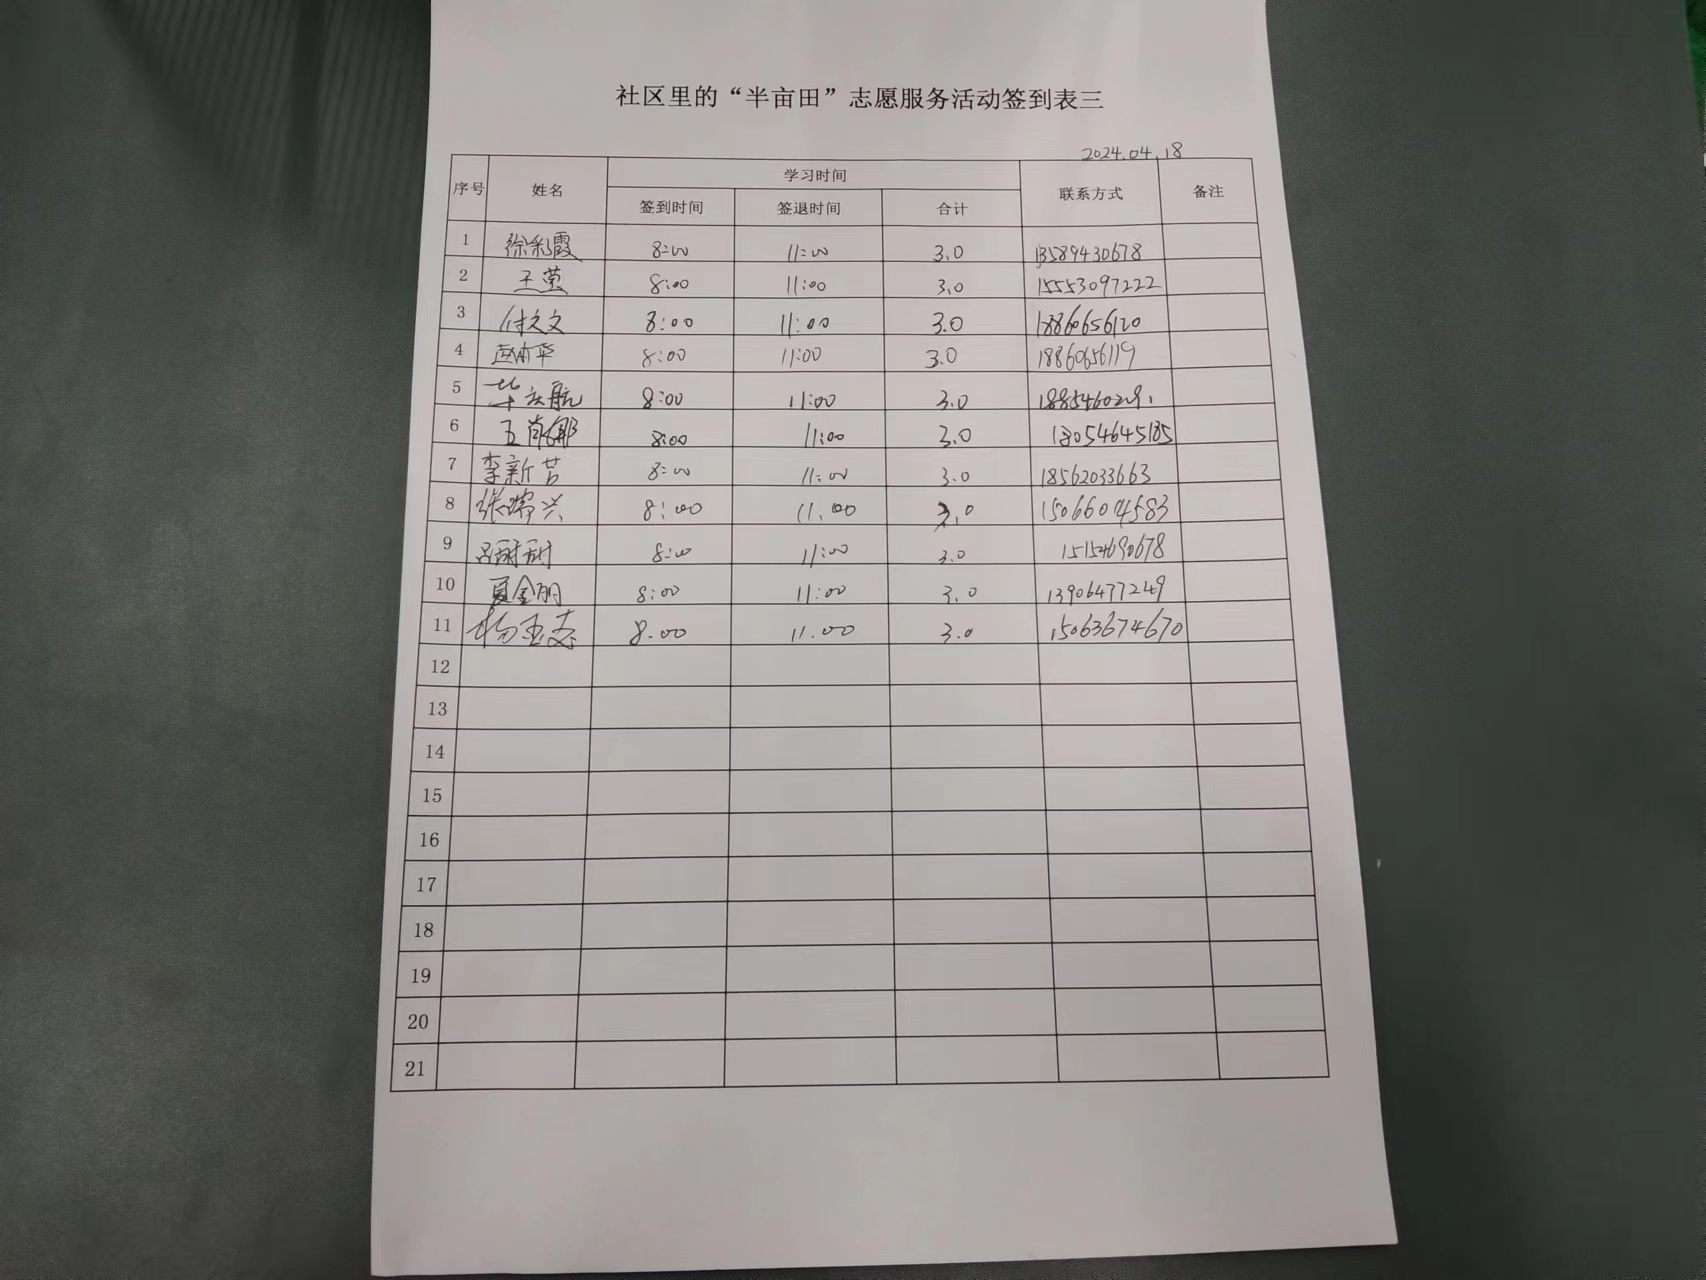 社区里的“半亩田”志愿服务活动签到表三
2024.04.18
序号 姓名 学习时间 联系方式 备注
签到时间 签退时间 合计
1 徐彩霞 8:00 11:00 3.0 13589430678
2 王萤 8:00 11:00 3.0 15553097222
3 付文文 8:00 11:00 3.0 18860656120
4 8:00 11:00 3.0 18860656119
5 8:00 11:00 3.0
6 王肖娜 8:00 11:00 3.0 18054645185
7 李新苦 8:00 11:00 3.0 18562033663
8 张瑞兴 8:00 11:00 3.0 15066004583
9 吕甜甜 8:00 11:00 3.0 15154690678
10 夏金朋 8:00 11:00 3.0 13906477249
11 8.00 11.00 3.0 15063674670
12
13
14
15
16
17
18
19
20
21